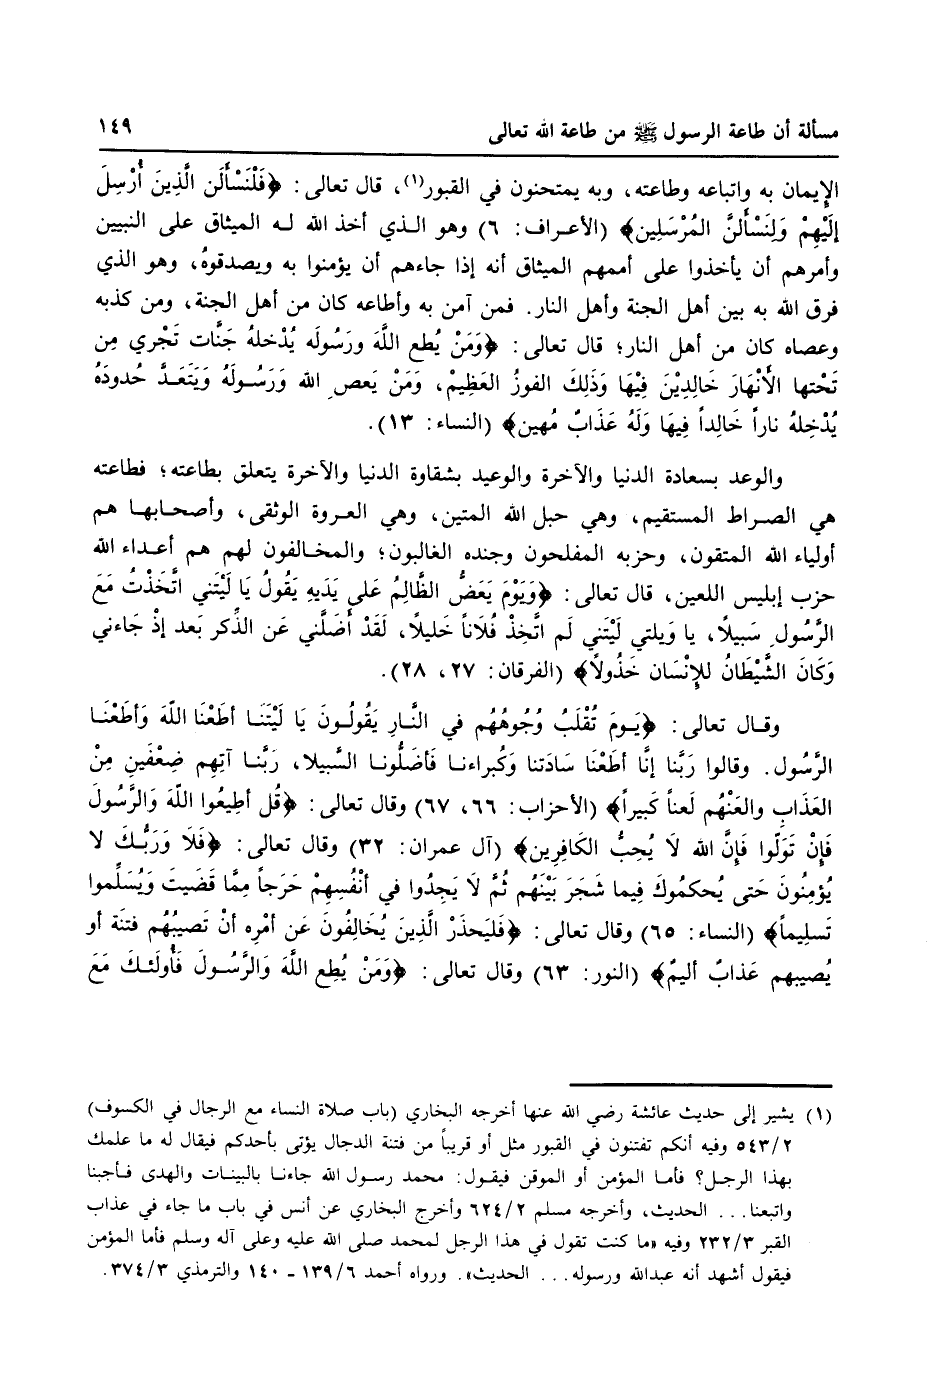 مسألة أن طاعة الرسول ﷺ من طاعة الله تعالى ١٤٩
الإيمان به واتباعه وطاعته، وبه يمتحنون في القبور(١)، قال تعالى: ﴿فَلْنَسْأَلَن الَّذِينَ أُرْسِلَ
إلَيْهِمْ وَلِنَسْأَلنَّ المُرْسَلِين﴾ (الأعراف: ٦) وهو الذي أخذ الله له الميثاق على النبيين
وأمرهم أن يأخذوا على أممهم الميثاق أنه إذا جاءهم أن يؤمنوا به ويصدقوهُ، وهو الذي
فرق الله به بين أهل الجنة وأهل النار. فمن آمن به وأطاعه كان من أهل الجنة، ومن كذبه
وعصاه كان من أهل النار؛ قال تعالى: ﴿وَمَنْ يُطع اللَّهَ ورَسُولَه يُدْخلهُ جَنَّات تَجْري مِن
تَحْتها الأَنْهَارَ خَالِدِيْنَ فِيْهَا وَذَلِكَ الفوزُ العَظِيمْ، وَمَنْ يَعص الله وَرَسُولَهُ وَيَتَعَدَّ حُدودَهُ
يُدْخِلهُ ناراً خَالِداً فِيهَا وَلَهُ عَذَابٌ مُهين﴾ (النساء: ١٣).
والوعد بسعادة الدنيا والآخرة والوعيد بشقاوة الدنيا والآخرة يتعلق بطاعته؛ فطاعته
هي الصراط المستقيم، وهي حبل الله المتين، وهي العروة الوثقى، وأصحابها هم
أولياء الله المتقون، وحزبه المفلحون وجنده الغالبون؛ والمخالفون لهم هم أعداء الله
حزب إبليس اللعين، قال تعالى: ﴿وَيَوْمَ يَعَضُّ الظَّالِمُ عَلى يَدَيهِ يَقُولُ يَا لَيْتَني اتَّخَذْتُ مَعَ
الرَّسُولِ سَبيلاً، يا وَيلتي لَيْتَني لَم اتَّخِذْ فُلاَناً خَليلاً، لَقَدْ أَضَلَّني عَن الذِّكر بَعد إذْ جَاءني
وَكَانَ الشَّيْطَانُ للإنْسَان خَذُولاً﴾ (الفرقان: ٢٧، ٢٨).
وقال تعالى: ﴿يَومَ تُقْلَبُ وُجُوهُهُم في النَّارِ يَقُولُونَ يَا لَيْتَنَا أطَعْنَا اللّهَ وَأطَعْنَا
الرَّسُول. وقالوا رَبَّنا إنَّا أطَعْنَا سَادَتنا وَكُبراءنا فَأضَلُّونا السَّبيلا، رَبَّنا آتِهِم ضِعْفَينِ مِنْ
العَذَابِ والعَنْهُم لَعناً كَبيراً﴾ (الأحزاب: ٦٦، ٦٧) وقال تعالى: ﴿قُل أطِيعُوا اللّهَ وَالرَّسُولَ
فَإنْ تَوَلّوا فَإنَّ الله لاَ يُحِبُّ الكَافِرِين﴾ (آل عمران: ٣٢) وقال تعالى: ﴿فَلَا وَرَبُّكَ لا
يُؤمِنُونَ حَتى يُحكمُوكَ فِيما شَجَرَ بَيْنَهُم ثُمَّ لَا يَجِدُوا في أنْفُسِهِمْ حَرَجاً مِمَّا قَضَيتَ وَيُسَلِّموا
تَسليماً﴾ (النساء: ٦٥) وقال تعالى: ﴿فَليَحذَرْ الَّذِينَ يُخَالِفُونَ عَن أمْرِه أنْ تَصيبُهُم فتنَة أو
يُصيبهم عَذابٌ أليمٌ﴾ (النور: ٦٣) وقال تعالى: ﴿وَمَنْ يُطِع اللَّهَ وَالرَّسُولَ فَأُولَئكَ مَعَ
(١) يشير إلى حديث عائشة رضي الله عنها أخرجه البخاري (باب صلاة النساء مع الرجال في الكسوف)
٥٤٣/٢ وفيه أنكم تفتنون في القبور مثل أو قريباً من فتنة الدجال يؤتى بأحدكم فيقال له ما علمك
بهذا الرجل؟ فأما المؤمن أو الموقن فيقول: محمد رسول الله جاءنا بالبينات والهدى فأجبنا
واتبعنا... الحديث، وأخرجه مسلم ٦٢٤/٢ وأخرج البخاري عن أنس في باب ما جاء في عذاب
القبر ٢٣٢/٣ وفيه «ما كنت تقول في هذا الرجل لمحمد صلى الله عليه وعلى آله وسلم فأما المؤمن
فيقول أشهد أنه عبدالله ورسوله... الحديث». ورواه أحمد ١٣٩/٦ - ١٤٠ والترمذي ٣٧٤/٣.